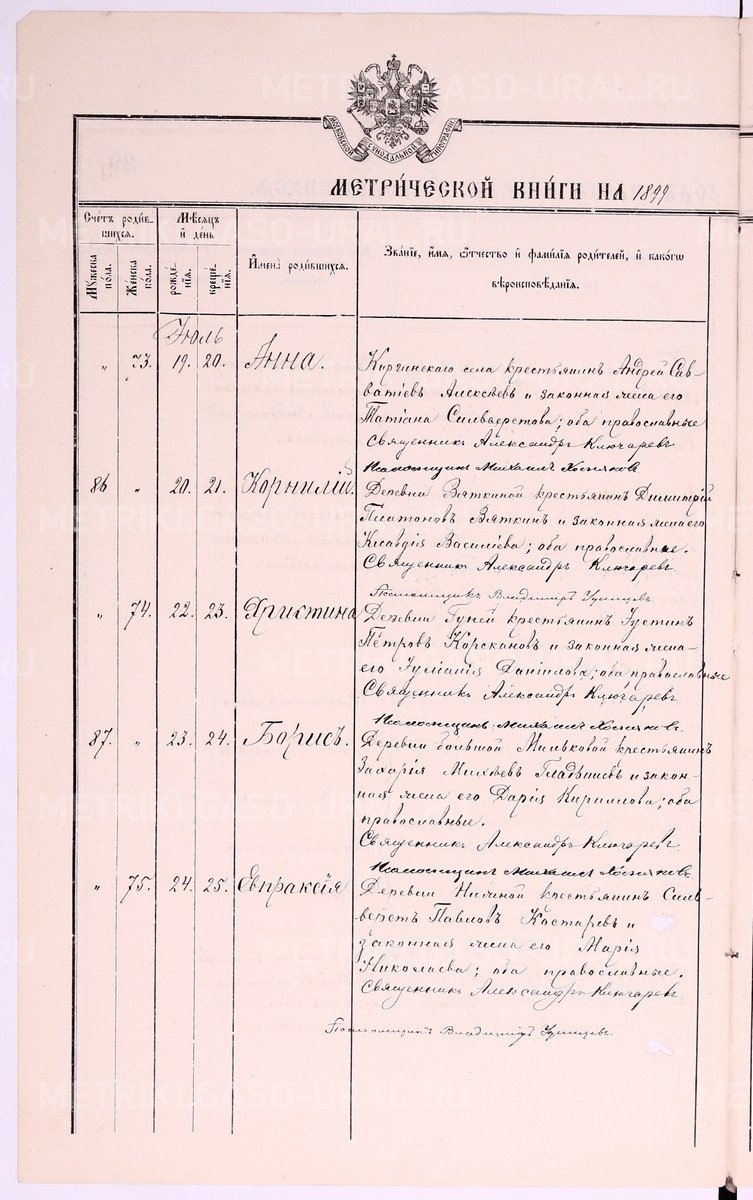 METRIKI.GASO-URAL.RU
МОСКОВСКОЙ СѴНОДАЛЬНОЙ ТИПОГРАФІИ
МЕТРИ́ЧЕСКОЙ КНИ́ГИ НА 1899
Сче́тъ роди́в-
шихся.
Мѣ́сяцъ
и҆ де́нь
Мꙋ́жеска
по́ла.
Же́нска
по́ла.
рожде́-
нїѧ.
креще́-
нїѧ.
И҆мена̀ роди́вшихся.
Зва́нїе, и҆́мѧ, ѻ҆́тчество и҆ фами́лїѧ роди́телей, и҆ како́гѡ
вѣроисповѣ́данїѧ.
Іюль
„ 73. 19. 20. Анна. Киргинскаго села крестьянинъ Андрей Сав-
ватіевъ Алексѣевъ и законная жена его
Татіана Сильверстова; оба православные
Священникъ Александръ Ключаревъ
Псаломщикъ Михаилъ Хосняковъ
86 „ 20. 21. Корнилій. Деревни Вяткиной крестьянинъ Димитрій
Платоновъ Вяткинъ и законная жена его
Клавдія Василіева; оба православные.
Священникъ Александръ Ключаревъ
Псаломщикъ Владиміръ
„ 74. 22. 23. Христина Деревни Гуней крестьянинъ Іустинъ
Петровъ Корскановъ и законная жена-
его Іуліанія Даніилова; оба православные
Священникъ Александръ Ключаревъ
Псаломщикъ Михаилъ Хосняковъ
87. „ 23. 24. Борисъ. Деревни большой Мильковой крестьянинъ
Захарія Михѣевъ Гладышевъ и закон-
ная жена его Дарія Кириллова; оба
православные.
Священникъ Александръ Ключаревъ
Псаломщикъ Михаилъ Хосняковъ
„ 75. 24. 25. Евпраксія Деревни Нижной крестьянинъ Силь-
верстъ Павловъ Костаревъ и
законная жена его Марія
Николаева; оба православные.
Священникъ Александръ Ключаревъ
Псаломщикъ Владиміръ